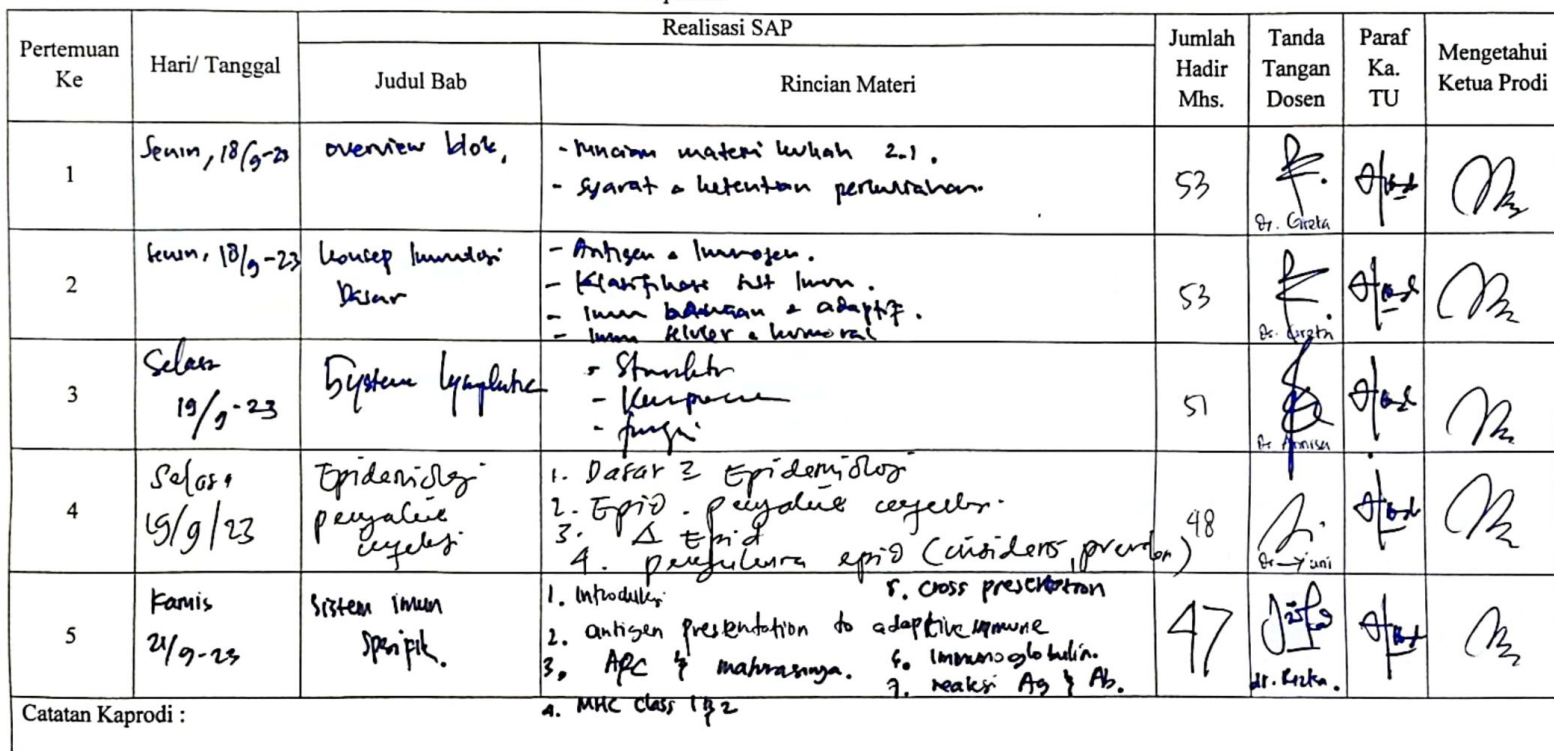 Realisasi SAP
Pertemuan Ke
Hari/ Tanggal
Judul Bab
Rincian Materi
Jumlah Hadir Mhs.
Tanda Tangan Dosen
Paraf Ka. TU
Mengetahui Ketua Prodi
1
Senin, 18/9-23
overview blok,
- rincian materi kuliah 2.1.
- syarat & ketentuan perkuliahan.
53
2
Senin, 18/9-23
Konsep Imunologi
Dasar
- Antigen & Imunogen.
- Klasifikasi sist Imun.
- Imun bawaan & adaptif.
- Imun seluler & humoral
53
3
Selasa
19/9-23
System lymphatic
- Struktur
- Komponen
- fungsi
51
Dr Annisa
4
Selasa
19/9/23
Epidemiologi
penyakit
infeksi
1. Dasar2 Epidemiologi
2. Epid. penyakit infeksi.
3. Δ Epid
4. pengukuran epid (insidens,
48
Dr Yuni
5
Kamis
21/9-23
Sistem imun
Spesifik.
1. Introduksi
2. antigen presentation to adaptive immune
3. APC & maturasinya.
4. MHC Class 1 & 2
5. cross presentation
6. Immunoglobulin.
7. reaksi Ag & Ab.
47
Catatan Kaprodi :